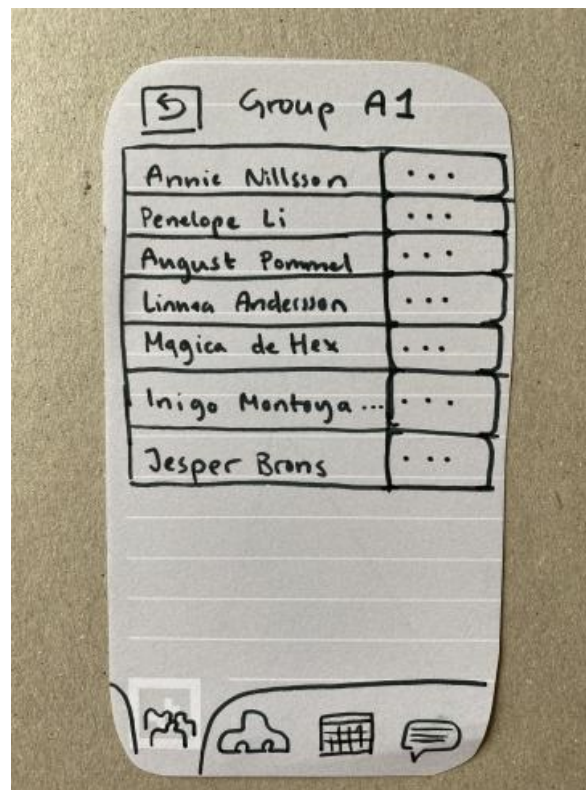 Group A1
Annie Nillsson ...
Penelope Li ...
August Pommel ...
Linnea Andersson ...
Magica de Hex ...
Inigo Montoya ... ...
Jesper Brons ...